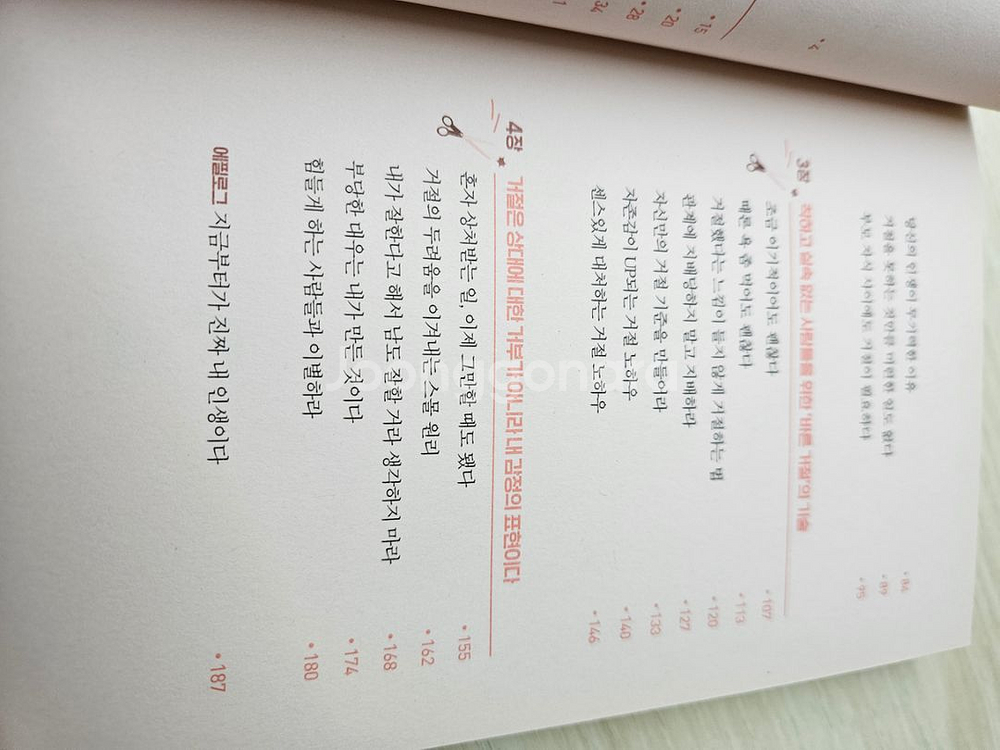 당신의 인생이 무기력한 이유 •84
거절을 못하는 것만큼 미련한 일도 없다 •89
부모 자식 사이에도 거절이 필요하다 •95
3장 착하고 실속 없는 사람들을 위한 '바른 거절'의 기술
조금 이기적이어도 괜찮다 •107
때론 욕 좀 먹어도 괜찮다 •113
거절했다는 느낌이 들지 않게 거절하는 법 •120
관계에 지배당하지 말고 지배하라 •127
자신만의 거절 기준을 만들어라 •133
자존감이 UP되는 거절 노하우 •140
센스있게 대처하는 거절 노하우 •146
4장 거절은 상대에 대한 거부가 아니라 내 감정의 표현이다
혼자 상처받는 일, 이제 그만할 때도 됐다 •155
거절의 두려움을 이겨내는 스몰 원리 •162
내가 잘한다고 해서 남도 잘할 거라 생각하지 마라 •168
부당한 대우는 내가 만든 것이다 •174
힘들게 하는 사람들과 이별하라 •180
에필로그 지금부터가 진짜 내 인생이다 •187
•4
•15
•20
•28
34
joonggonara